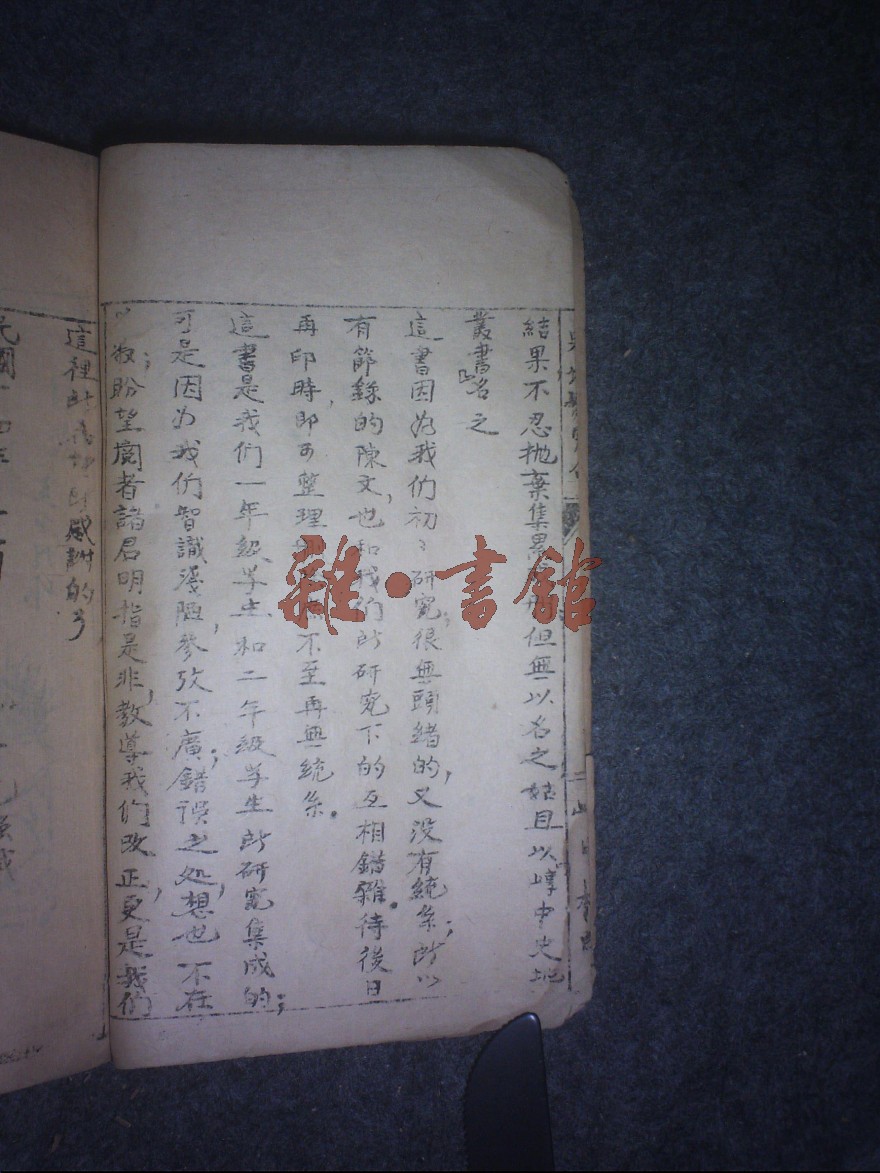 結果不忍抛棄集累但無以名之姑且以崞中史地
叢書』名之
這書因為我們初〻研究,很無頭緒的,又没有統系;所以
有節錄的陳文,也和我們所研究下的互相錯雜.待後日
再印時,即可整理不至再無統系.
這書是我們一年級学生和二年級学生所研究集成的;
可是因为我們智識淺陋,參攷不廣;錯誤之処,想也不在
盼望閱者諸君明指是非,教導我們改正,更是我們
這裡所感謝的了
民國
雜·書館